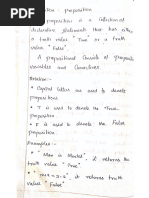 preposition
A preposition is a Collection of
declarative Statements that has either
a truth value "True or a truth
value "False".
A propositional Consists of
Variables and Connectives.
Notation:-
• Capital letters are used to denote
prepositions
• T is used to denote the True
preposition
• F is used to denote the False
preposition.
Examples:-
• " Man is Mortal" it returns the
truth value "true"
it returns truth
value " False"